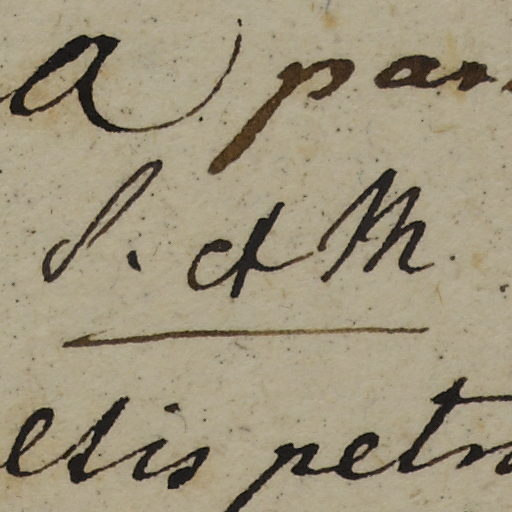 a par
S. et M.
etis petr